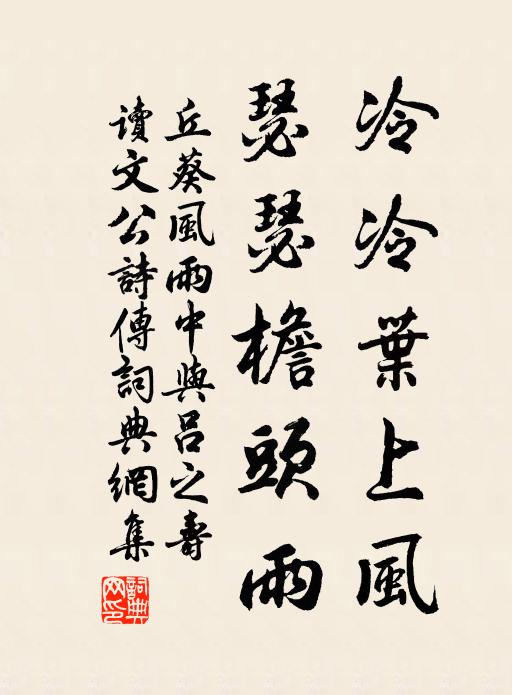 冷冷葉上風
瑟瑟檐頭雨
丘葵風雨中與呂之壽
讀文公詩傳詞典網集
詞典网印